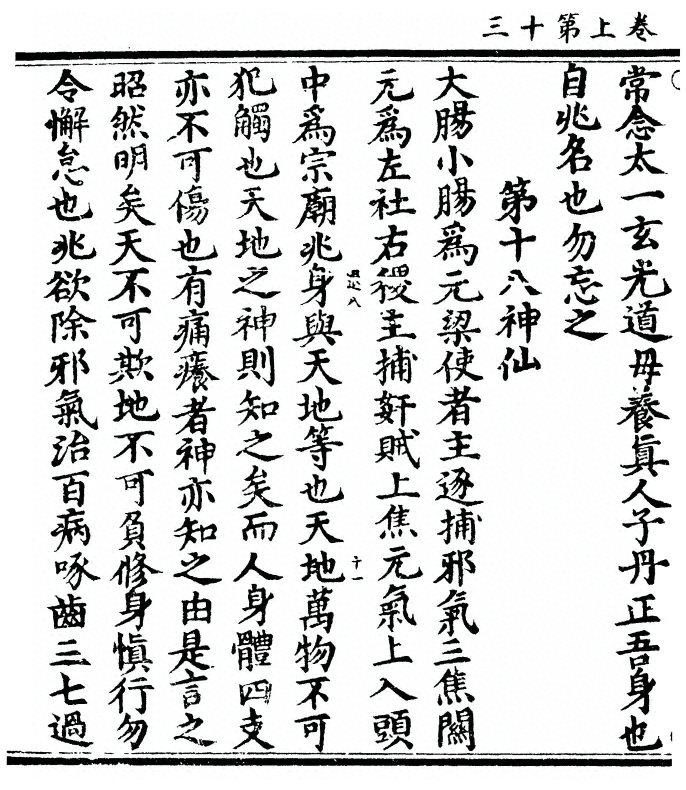 卷上第十三
常念太一玄光道母養眞人子丹正吾身也
自兆名也勿忘之
第十八神仙
大腸小腸爲元梁使者主逐捕邪氣三焦關
元爲左社右稷主捕奸賊上焦元氣上入頭
中爲宗廟兆身與天地等也天地萬物不可
犯觸也天地之神則知之矣而人身體四支
亦不可傷也有痛癢者神亦知之由是言之
昭然明矣天不可欺地不可負修身愼行勿
令懈怠也兆欲除邪氣治百病啄齒三七過
十一